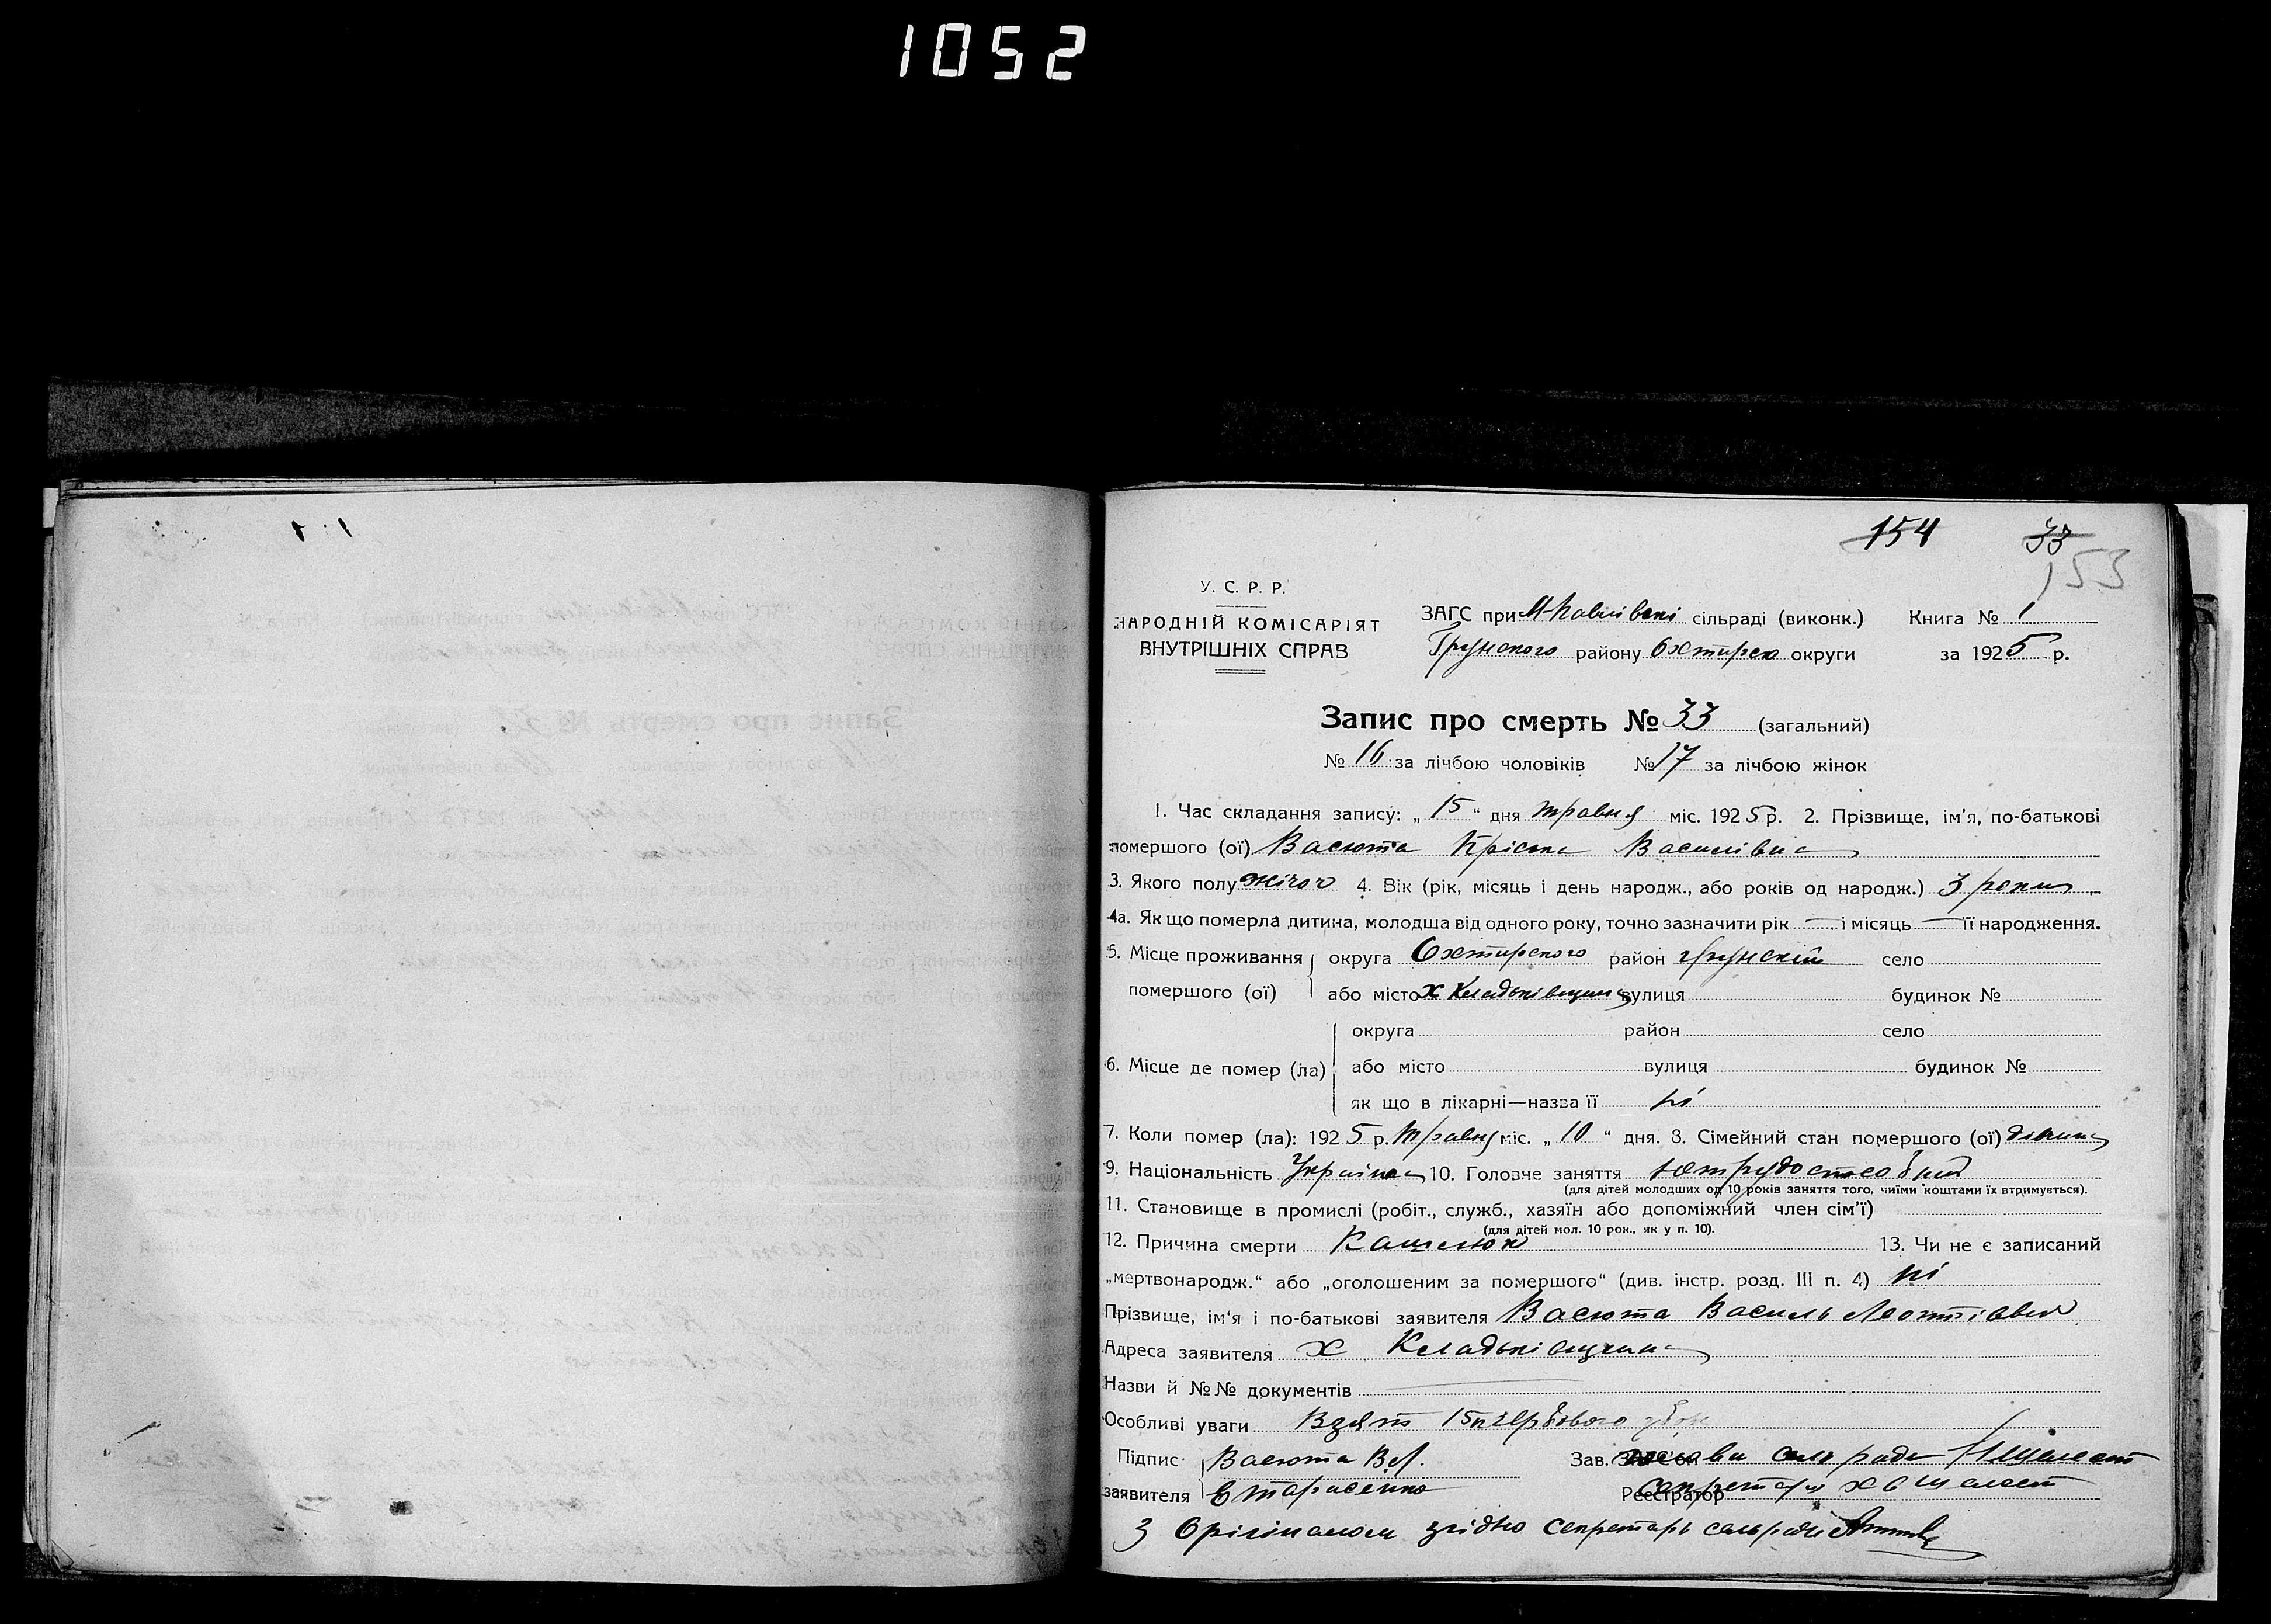 1052
154 33
153
У. С. Р. Р.
НАРОДНІЙ КОМІСАРІЯТ
ВНУТРІШНІХ СПРАВ
ЗАГС при сільраді (виконк.) Книга № 1
Грунского району Охтирск округи за 1925 р.
Запис про смерть № 33 (загальний)
№ 16 за лічбою чоловіків № 17 за лічбою жінок
1. Час складання запису: „ 15 “ дня травня міс. 1925 р. 2. Прізвище, ім'я, по-батькові
помершого (ої) Васюта Пріська Василівна
3. Якого полу жіноч 4. Вік (рік, місяць і день народж., або років од народж.) 3 роки
4а. Як що померла дитина, молодша від одного року, точно зазначити рік — і місяць — її народження.
5. Місце проживання округа Охтирского район Грунский село
помершого (ої) або місто х Кладьківщина вулиця будинок №
округа район село
6. Місце де помер (ла) або місто вулиця будинок №
як що в лікарні—назва її ні
7. Коли помер (ла): 1925 р. травня міс. „ 10 “ дня. 8. Сімейний стан помершого (ої) дитина
9. Національність Українка 10. Головне заняття
(для дітей молодших од 10 років заняття того, чиїми коштами їх втримується).
11. Становище в промислі (робіт., служб., хазяїн або допоміжний член сім'ї)
(для дітей мол. 10 рок., як у п. 10).
12. Причина смерти Кашлюк 13. Чи не є записаний
„мертвонародж.“ або „оголошеним за помершого“ (див. інстр. розд. III п. 4) ні
Прізвище, ім'я і по-батькові заявителя Васюта Василь Леонтієвич
Адреса заявителя х Кладьківщина
Назви й №№ документів
Особливі уваги Взят 15п гербового збору
Підпис Васюта В.Л. Зав. голова сель ради Шелест
заявителя Е Тарасенко Реєстратор секретарь
З Орігіналом згідно секретарь сельради